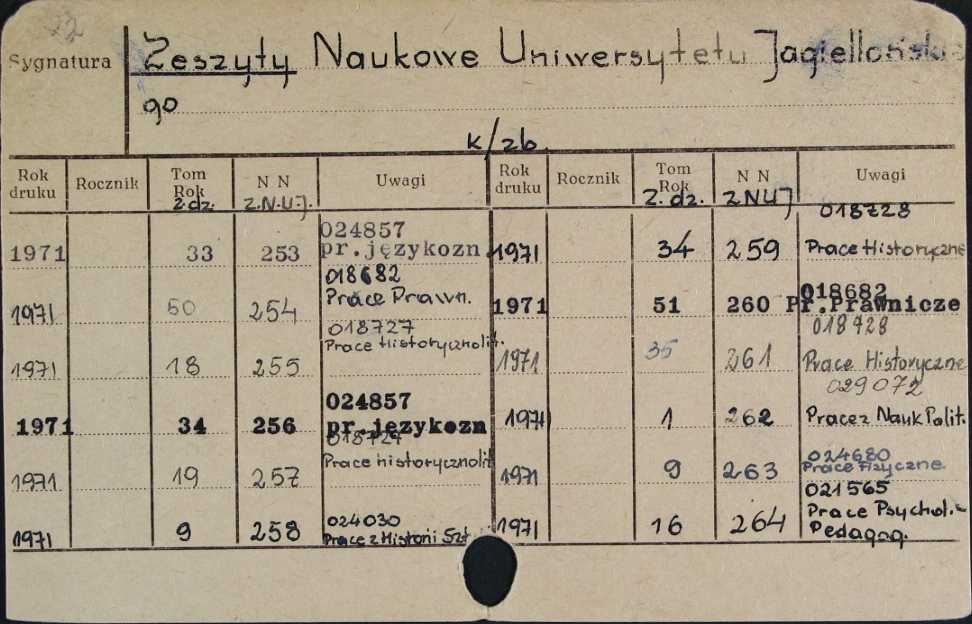 72
Sygnatura
Zeszyty Naukowe Uniwersytetu Jagiellońskie
go
k/zb.
Rok druku Rocznik Tom Rok Z.dz. N N Z.N.U.J. Uwagi
1971 33 253 024857 pr.językozn.
1971 50 254 018682 Prace Prawn.
1971 18 255 018727 Prace Historycznolit.
1971 34 256 024857 pr.językozn
1971 19 257 018727 Prace historycznolit
1971 9 258 024030 Prace z Historii Szt.
Rok druku Rocznik Tom Rok Z. dz. N N ZNUJ Uwagi
1971 34 259 018728 Prace Historyczne
1971 51 260 018682 Pr.Prawnicze
1971 35 261 018728 Prace Historyczne
1971 1 262 029072 Prace z Nauk Polit.
1971 9 263 024680 Prace Fizyczne.
1971 16 264 021565 Prace Psychol.-
Pedagog.